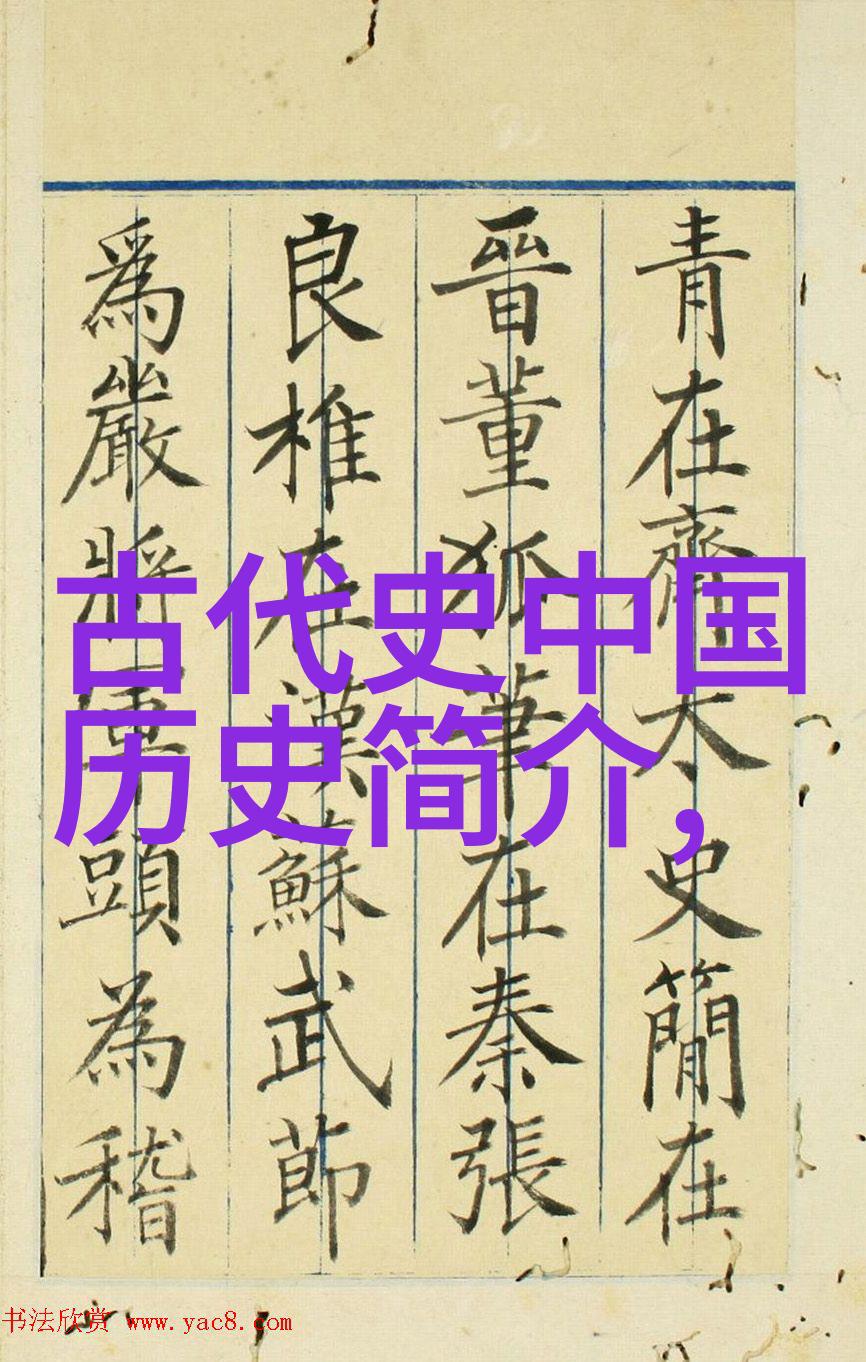 青在齊太史簡在
晉董狐筆在秦張
良椎在漢蘇武節
為嚴將軍頭為嵇
古代史中国
历史简介，
书法欣赏 www.yac8.com